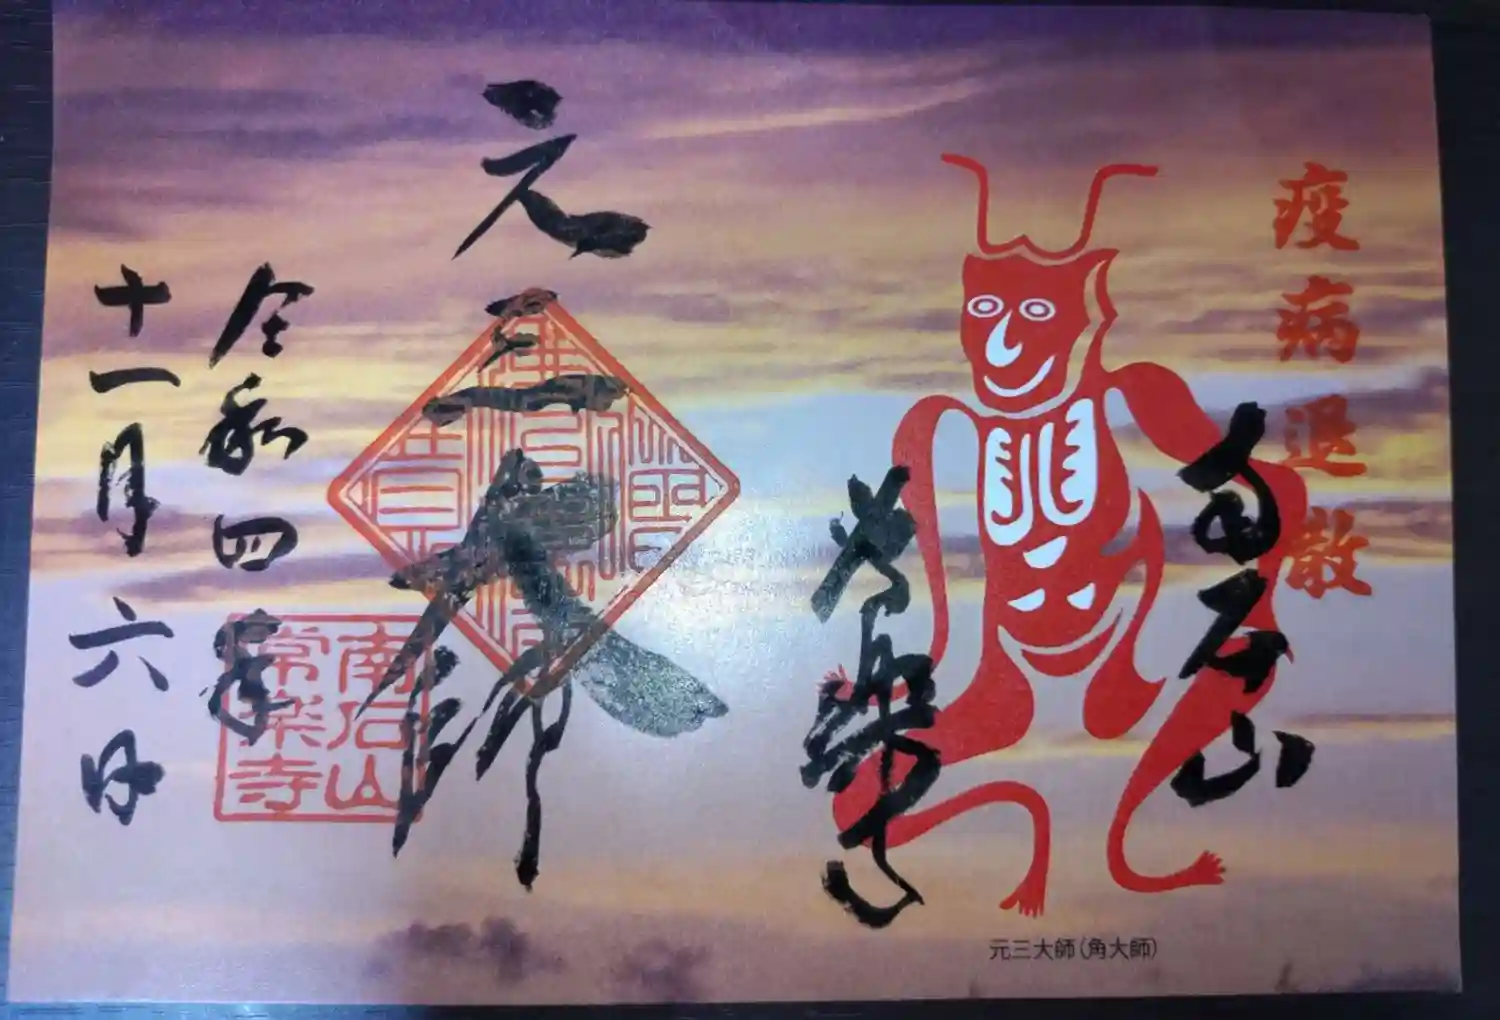 疫病退散
南石山
常楽寺
元三大師
令和四年
十一月六日
南石山
常楽寺
元三大師(角大師)